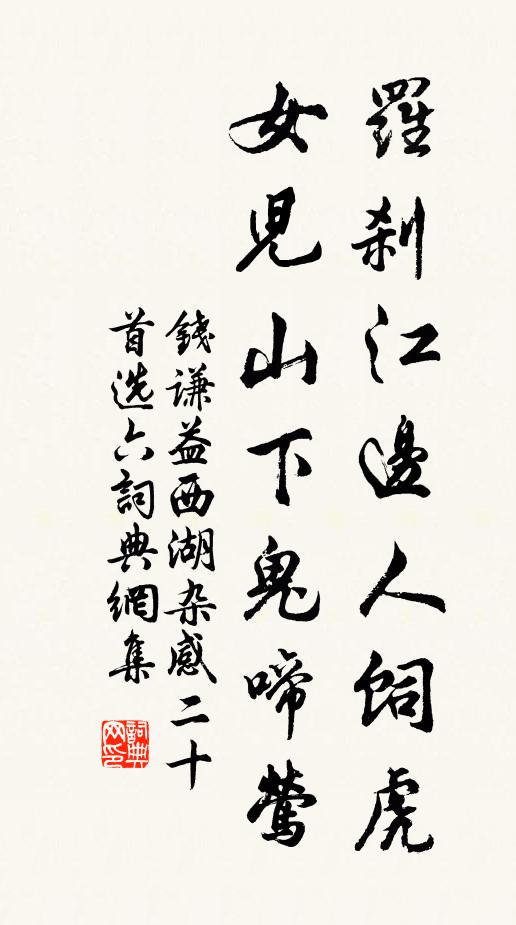 羅刹江邊人飼虎
女兒山下鬼啼鶯
錢謙益西湖杂感二十
首选六詞典網集
詞典
网印